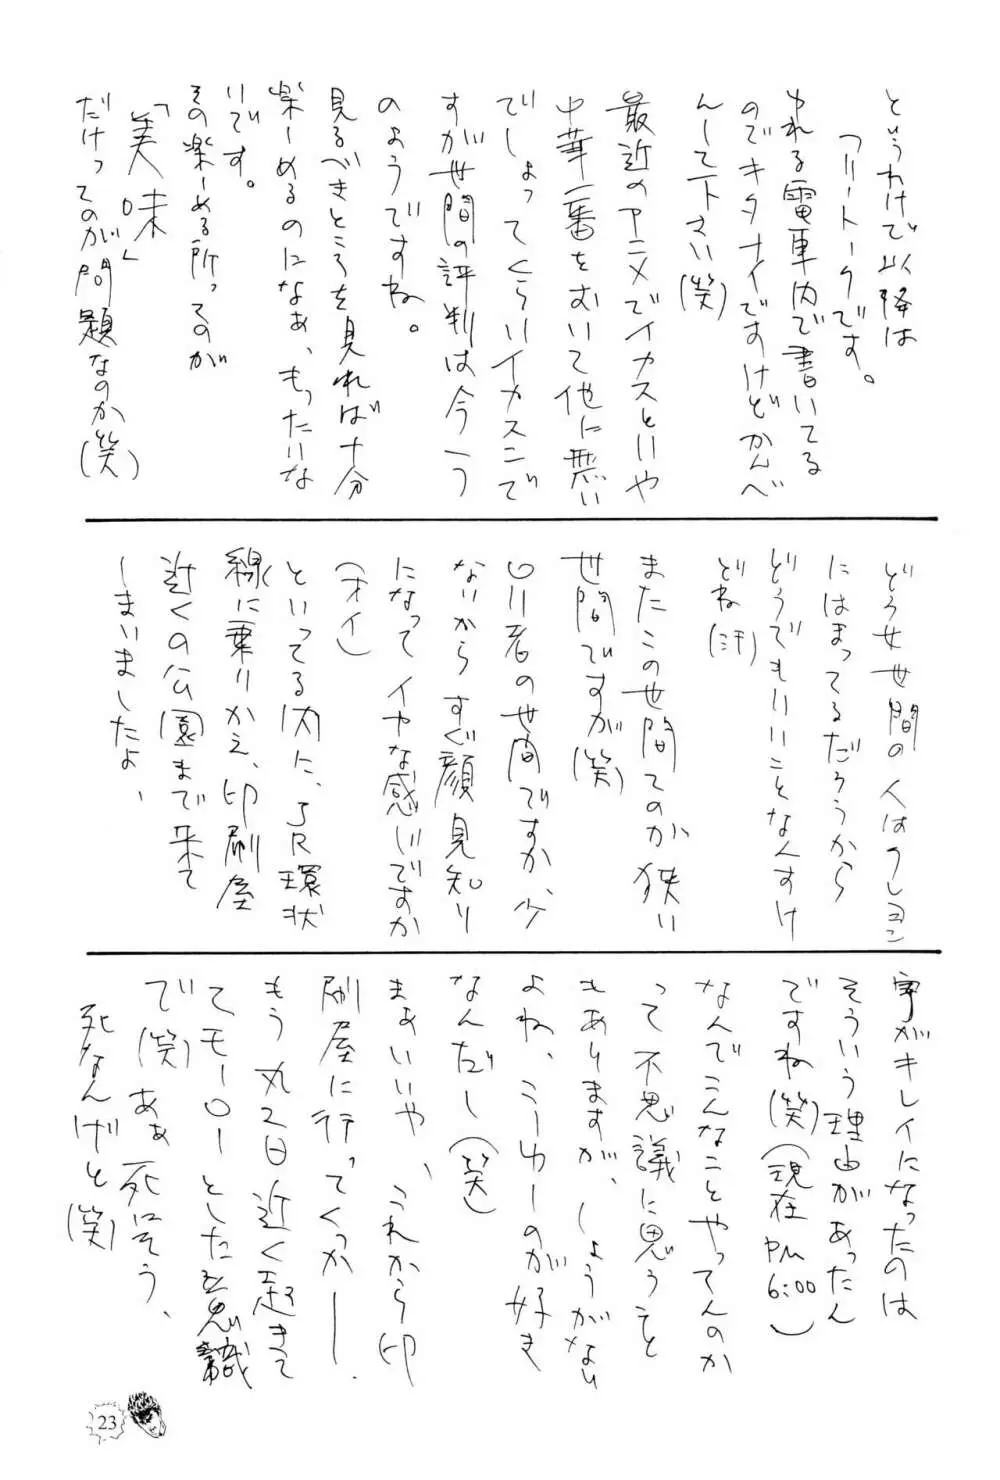 というわけで以降は
フリートークです。
ゆれる電車内で書いてる
のでキタナイですけどかんべ
んして下さい(笑)
最近のアニメでイカスといや
中華一番をおいて他に悪い
でしょってくらいイカスこで
すが世間の評判は今一つ
のようですね。
見るべきところを見れば十分
楽しめるのになぁ、もったいな
いです。
その楽しめる所ってのが
「美味」
だけってのが問題なのか(笑)
どうせ世間の人はクレヨン
にはまってるだろうから
どうでもいいことなんすけ
どね(汗)
またこの世間てのが狭い
世間ですが(笑)
同じ者の世間ですか、少
ないからすぐ顔見知り
になってイヤな感じですか
(オイ)
といってる内に、JR環状
線に乗りかえ、印刷屋
近くの公園まで来て
しまいましたよ、
字がキレイになったのは
そういう理由があったん
ですね(笑)(現在PM6:00)
なんでこんなことやってんのか
って不思議に思うこと
もありますが、しょうがない
よね、こーゆーのが好き
なんだし(笑)
まぁいいや、これから印
刷屋に行ってくっかー。
もう丸2日近く起きて
てモーローとした意識
で(笑)あぁ死にそう、
死なんけど(笑)
23